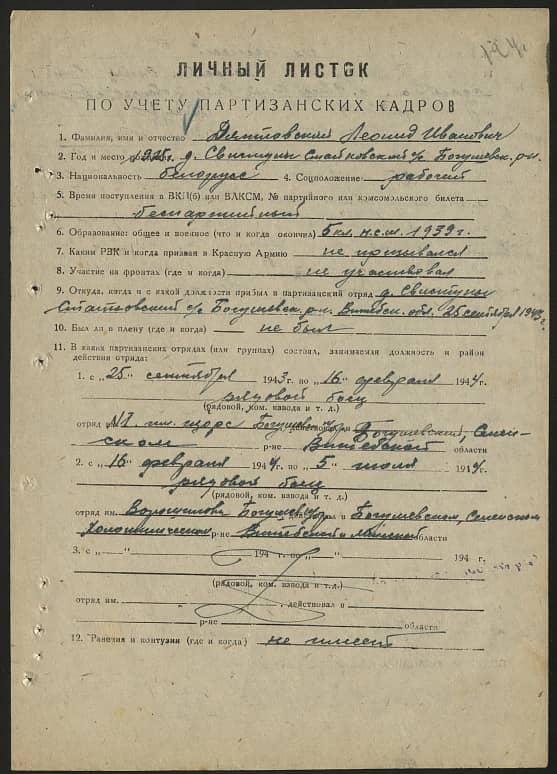 ЛИЧНЫЙ ЛИСТОК
ПО УЧЕТУ ПАРТИЗАНСКИХ КАДРОВ
1. Фамилия, имя и отчество Леонид Иванович
2. Год и место 1925г. д. с/с Богушевск. р-н.
3. Национальность белорусс 4. Соцположение рабочий
5. Время поступления в ВКП(б) или ВЛКСМ, № партийного или комсомольского билета
беспартийный
6. Образование: общее и военное (что и когда окончил) 5 кл. н.с.ш. 1939 г.
7. Каким РВК и когда призван в Красную Армию не призывался
8. Участие на фронтах (где и когда) не участвовал
9. Откуда, когда и с какой должности прибыл в партизанский отряд д.
с/с Богушевск. р-н. Витебск. обл. 25 сентября 1943 г.
10. Был ли в плену (где и когда) не был
11. В каких партизанских отрядах (или группах) состоял, занимаемая должность и район
действия отряда:
1. с „25" сентября 1943 г. по „16" февраля 1944 г.
рядовой боец
(рядовой, ком. взвода и т. д.)
отряд им. Щорс действовал в Богушевский, Сенен-
ском р-не Витебской области
2. с „16" февраля 1944 г. по „5" июля 1944 г.
рядовой боец
(рядовой, ком. взвода и т. д.)
отряд им. Ворошилова в Богушевском, Сененском
Холопиническом р-не Витебской и Минской области
3. с „—" 194 г. по „—" 194 г.
(рядовой, ком. взвода и т. д.)
отряд им. , действовал в
р-не области
12. Ранения и контузии (где и когда) не имеет